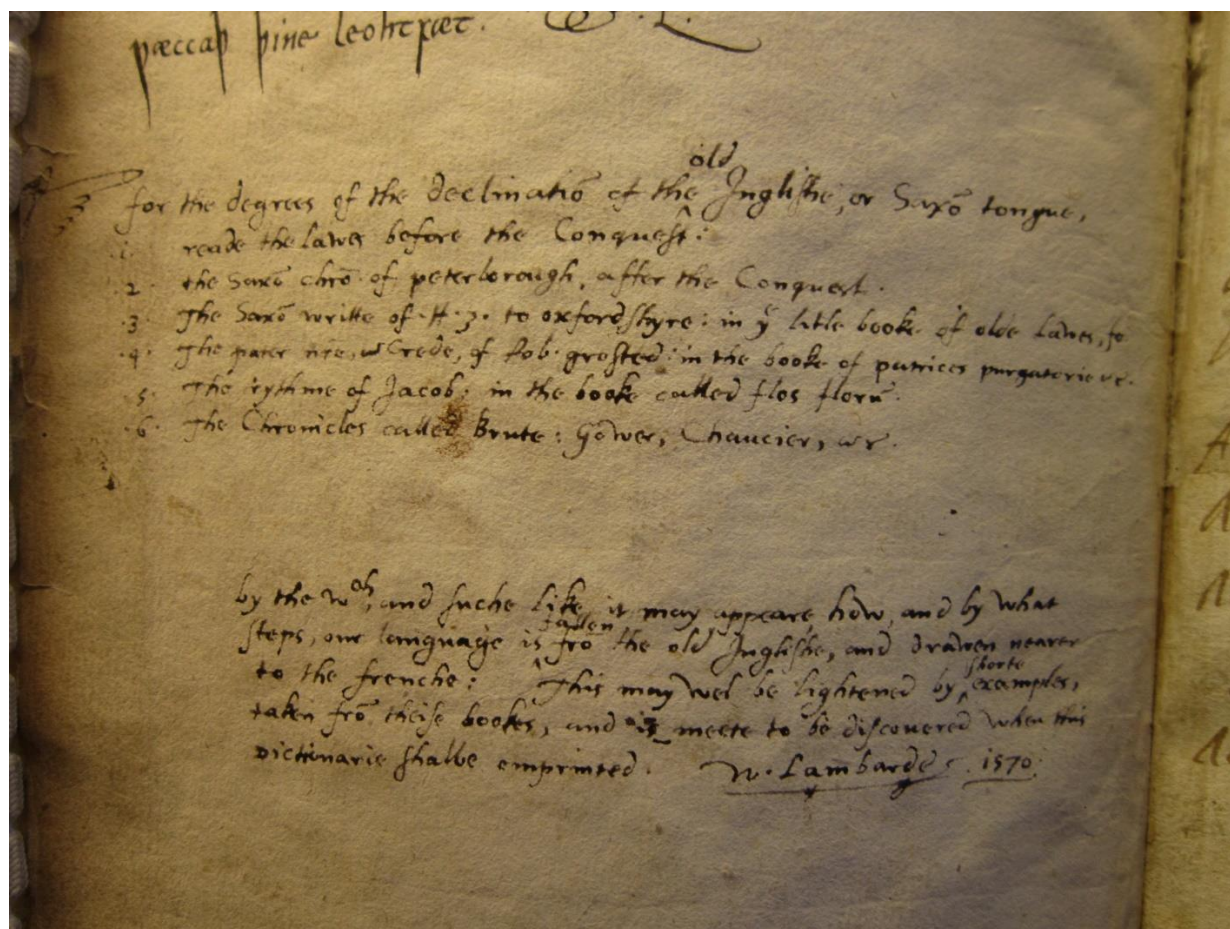 ƿæccaþ þine leohtfæt. L.
old
for the degrees of the Declinatiõ of the ^ Inglishe, or Saxõ tongue,
.1. reade the lawes before the Conquest:
.2. the Saxõ chrõ. of peterborough, after the Conquest.
.3. The Saxõ writte of .H.3. to oxfordshyre: in yͤ litle booke of olde Lawes, fo
.4. The pater nre, & Crede, of Rob. grosted: in the booke of patrices purgatorie &c.
5. The rythme of Jacob: in the booke called flos florũ.
.6. The Chronicles called Brute: Gower, Chaucier, &c.
by the wᶜʰ, and suche like, it may appeare, how, and by what
fallen
steps, our language is ^ frõ the old Inglishe, and drawen nearer
shorte
to the frenche: This may wel be lightened by ^ examples,
taken frõ theise bookes, and is meete to be discovered when this
Dictionarie shalbe emprinted. W. Lambarde. 1570.